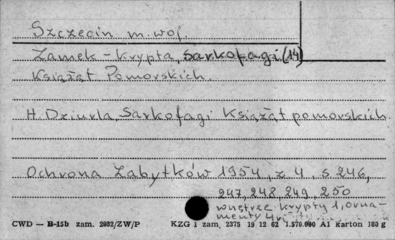 Szczecin m. woj.
Zamek - Krypta, Sarkofagi (14)
Książąt Pomorskich.
H. Dziurla, Sarkofagi Książąt pomorskich.
Ochrona Zabytków 1954, z 4, s 246,
247, 248 249, 250
wnętrze krypty 1, orna-
menty 4
CWD — B-15b zam. 2932/ZW/P KZG 1 zam. 2375 19 12 62 1.570.000 A1 karton 180 g